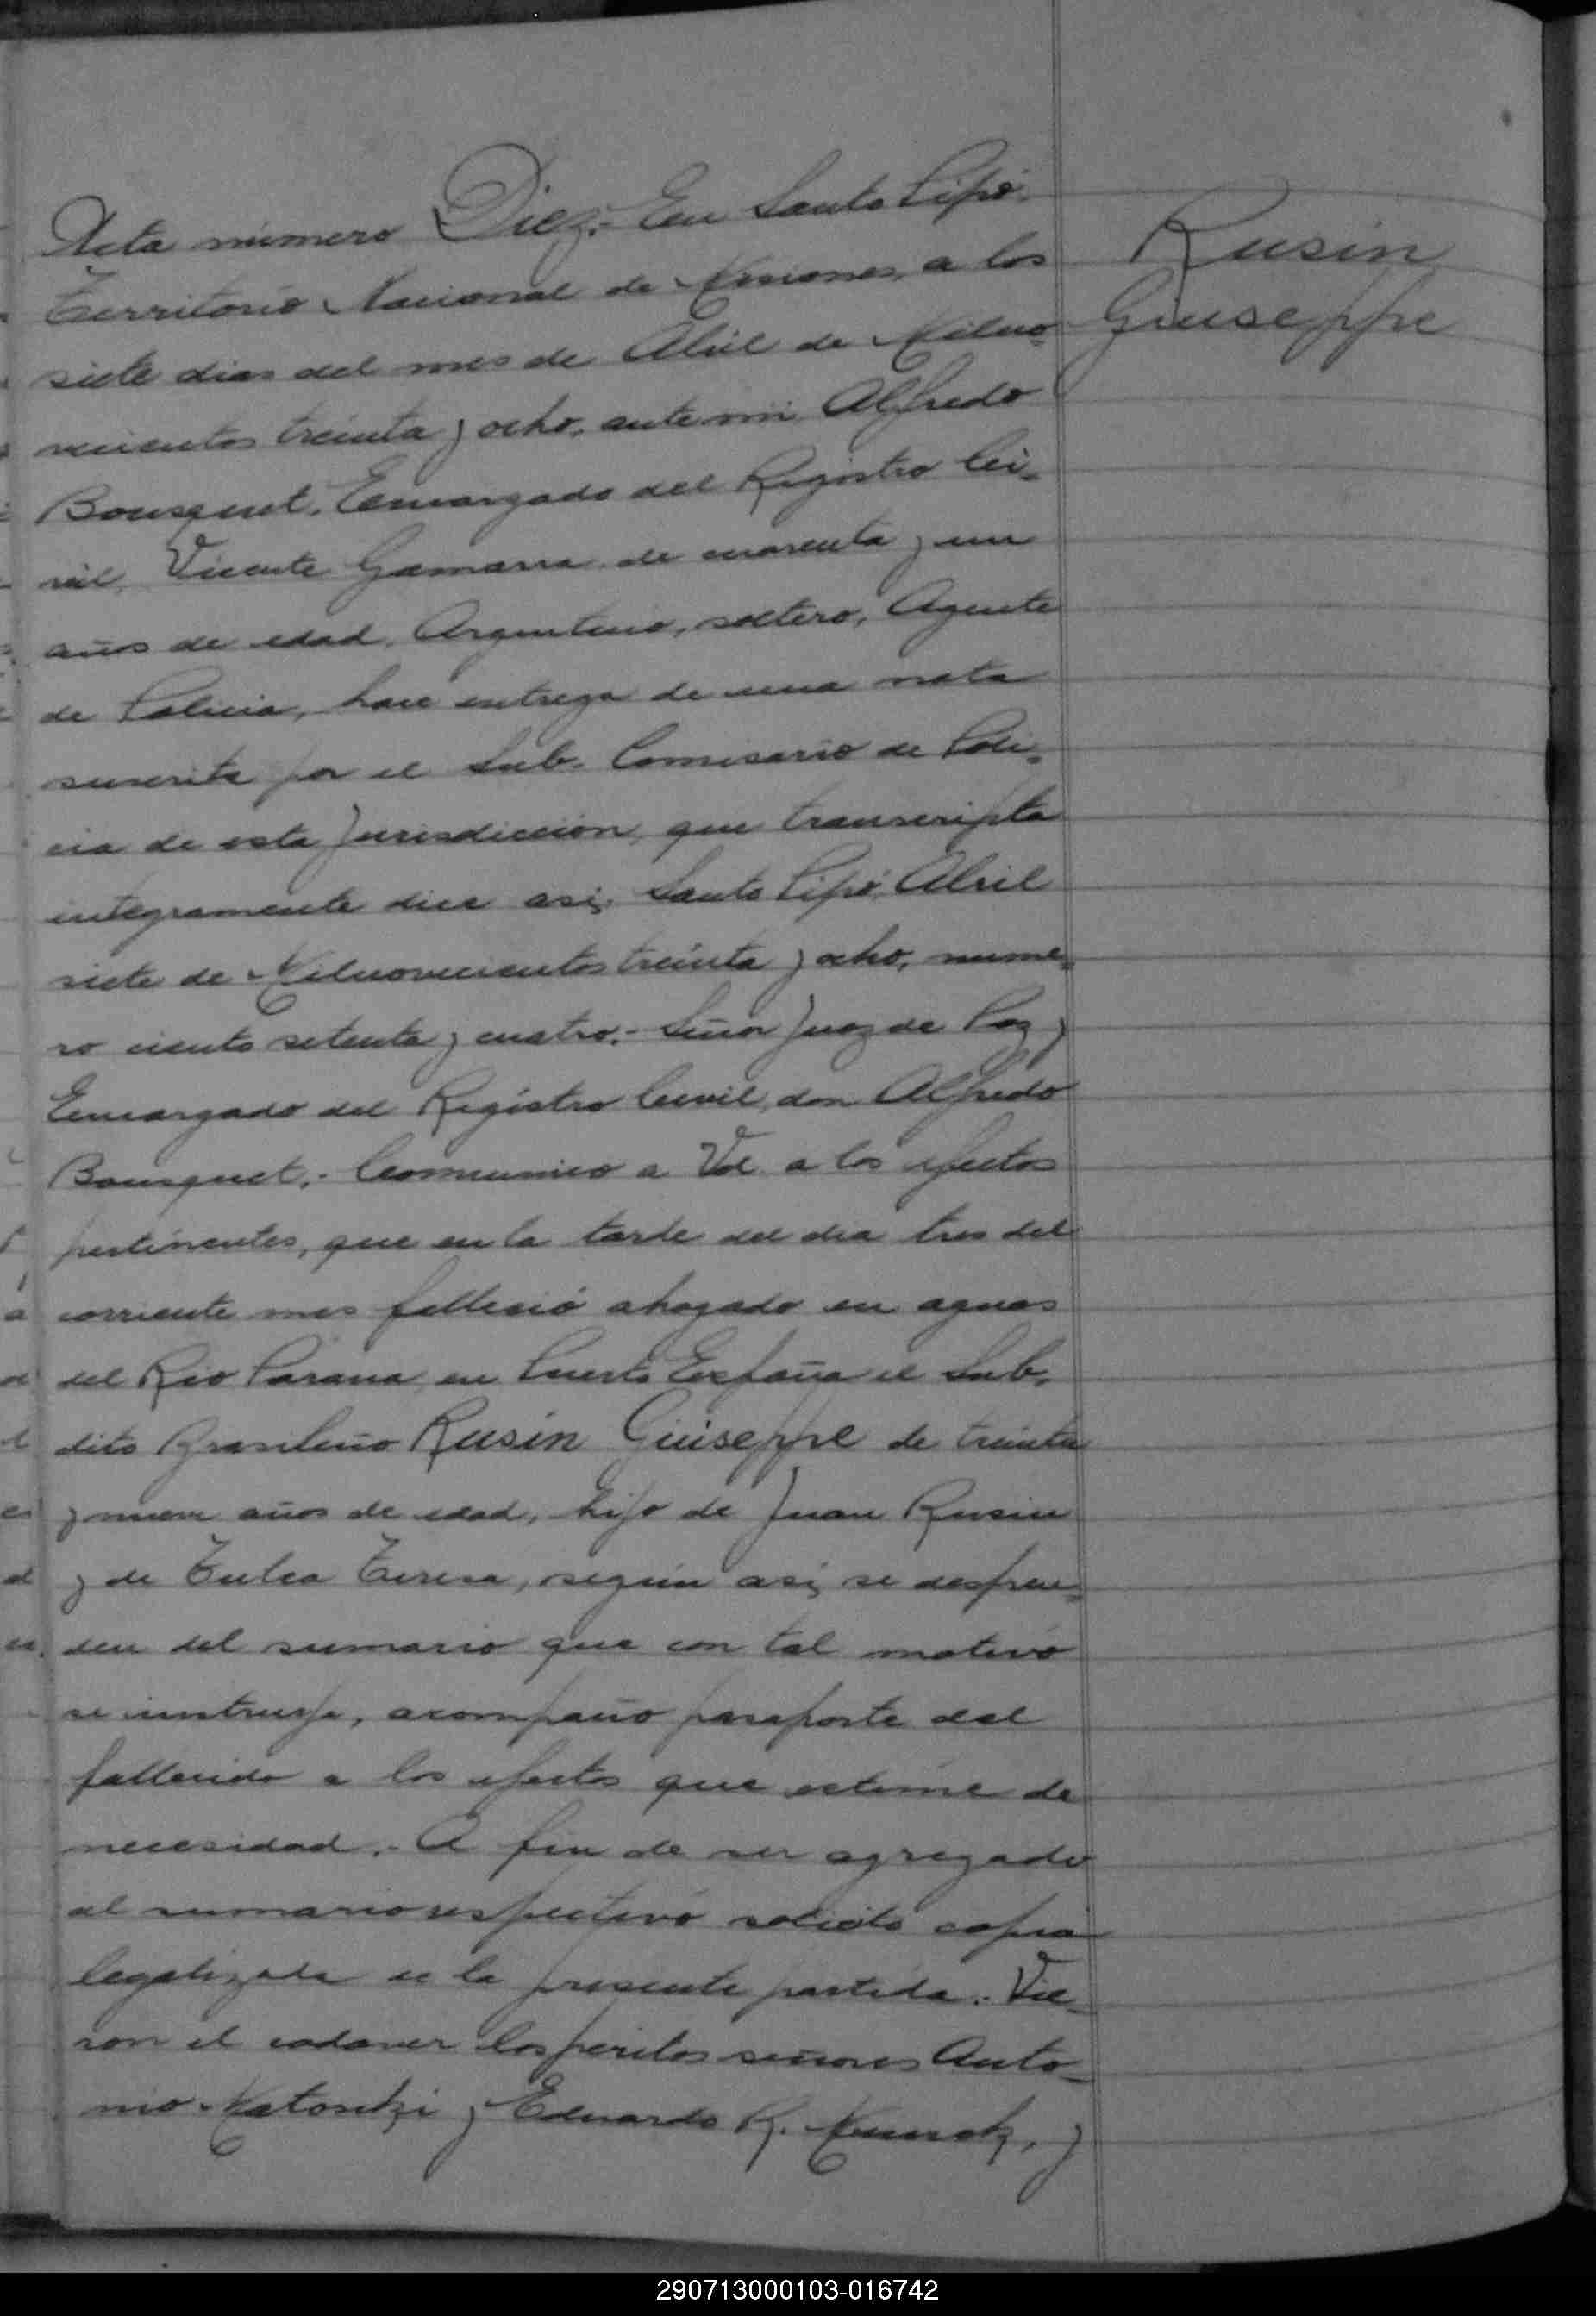 Acta número Diez.- En Santo Pipó.
Territorio Nacional de Misiones, a los
siete dias del mes de Abril de Milno-
vecientos treinta y ocho, ante mi Alfredo
Bousquet, Encargado del Registro Ci-
vil, Vicente Gamarra de cuarenta y un
años de edad, Argentino, soltero, Agente
de Policia, hace entrega de una nota
suscrita por el Sub. Comisario de Poli-
cia de esta Jurisdicción, que transcripta
integramente dice asi; Santo Pipó, Abril
siete de Milnovecientos treinta y ocho, nume-
ro ciento setenta y cuatro.- Señor Juez de Paz y
Encargado del Registro Civil, don Alfredo
Bousquet.- Comunico a Vd. a los efectos
pertinentes, que en la tarde del dia tres del
corriente mes falleció ahogado en aguas
del Rio Parana, en Puerto España el Sub-
dito Brasileño Rusin Giuseppe de treinta
y nueve años de edad, hijo de Juan Rusin
y de Teresa, según asi, se despren-
den del sumario que con tal motivo
se instruye, acompaño pasaporte del
fallecido a los efectos que estime de
necesidad.- A fin de ser agregado
al sumario respectivo solicito copia
legalizada de la presente partida. Vie-
ron el cadaver los peritos señores Anto-
nio y Eduardo R. y
Rusin
Giuseppe
290713000103-016742